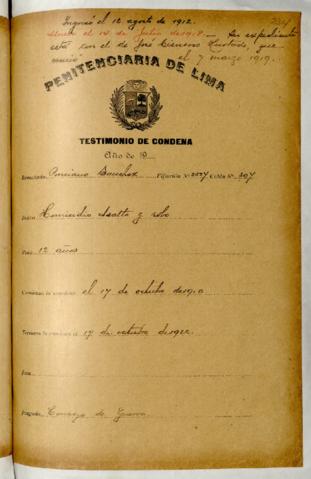 Ingresó el 12 agosto de 1912.
234
el 14 de Julio de 1918 — Su expediente
está con el de José Cisneros Hurtado, que
murió el 7 marzo 1919.
PENITENCIARIA DE LIMA
TESTIMONIO DE CONDENA
Año de 19
Rematado Ponciano Sanchez Filiación Nº 2557 Celda Nº 307
Delito Homicidio Asalto y robo
Pena 12 años
Comienza la condena el 17 de octubre de 1910
Termina la condena el 17 de octubre de 1922
Juez
Juzgado Consejo de Guerra